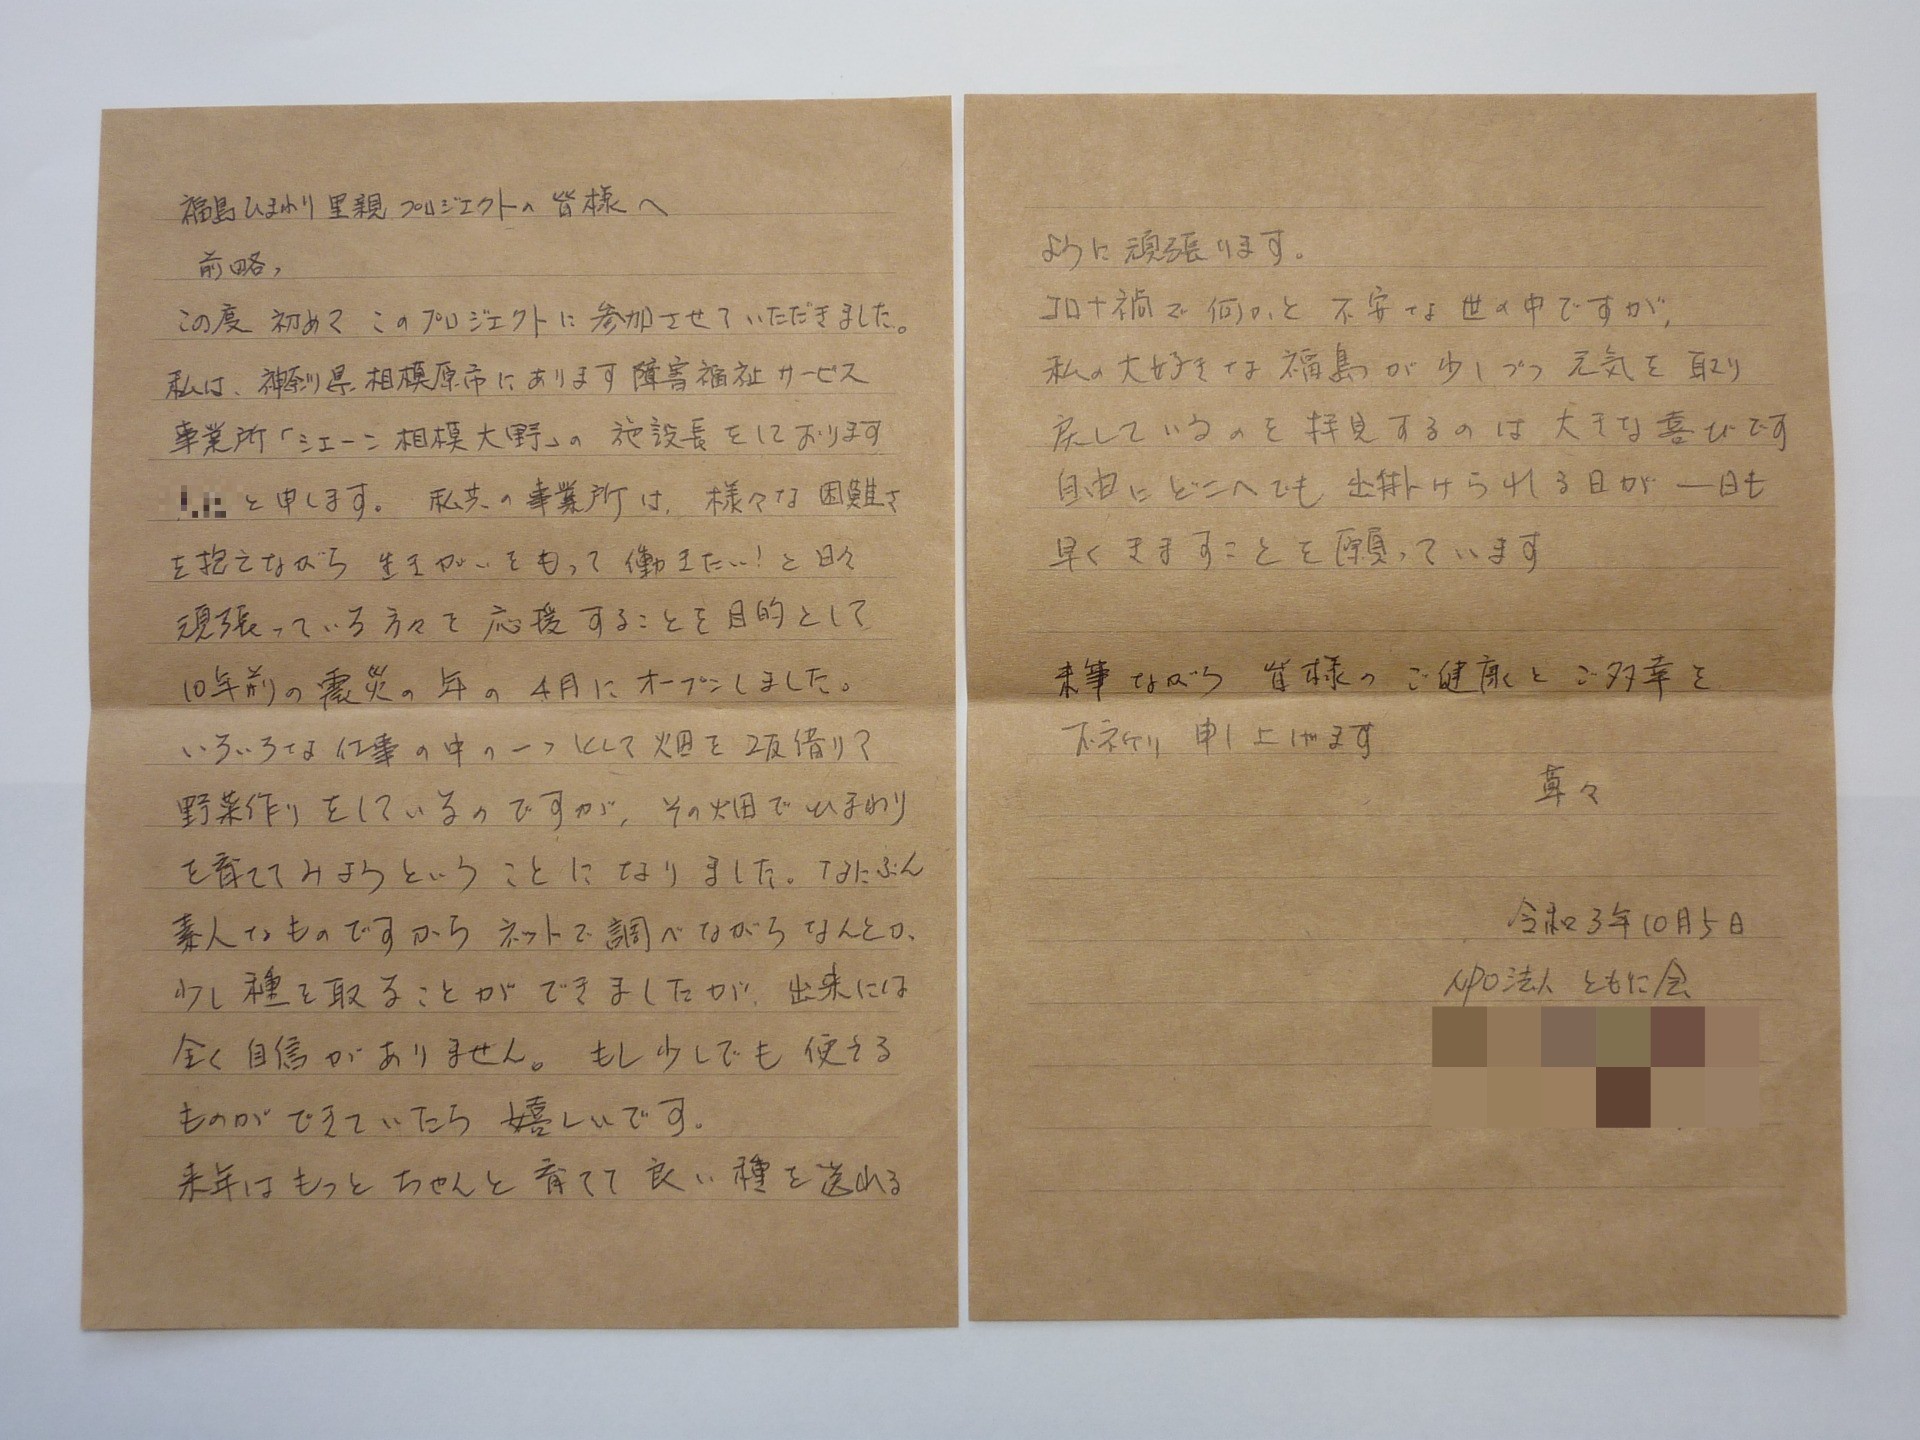 福島ひまわり里親プロジェクトの皆様へ
前略、
この度 初めて このプロジェクトに 参加させていただきました。
私は、神奈川県相模原市にあります障害福祉サービス
事業所「シェーン相模大野」の 施設長をしております
と申します。 私共の事業所は、様々な困難さ
を抱えながら 生きがいをもって 働きたい！と日々
頑張っている方々を 応援することを目的として
10年前の震災の年の4月にオープンしました。
いろいろな仕事の中の一つとして畑を2反借りて
野菜作りをしているのですが、その畑でひまわり
を育ててみようということになりました。なにぶん
素人なものですからネットで調べながらなんとか、
少し種を取ることができましたが、出来には
全く自信がありません。もし少しでも使える
ものができていたら嬉しいです。
来年はもっとちゃんと育てて良い種を送れる
ように頑張ります。
コロナ禍で何かと不安な世の中ですが、
私の大好きな福島が少しづつ元気を取り
戻しているのを拝見するのは大きな喜びです
自由にどこへでも出掛けられる日が一日も
早くきますことを願っています
末筆ながら 皆様のご健康とご多幸を
お祈り申し上げます
草々
令和3年10月5日
NPO法人 ともに会